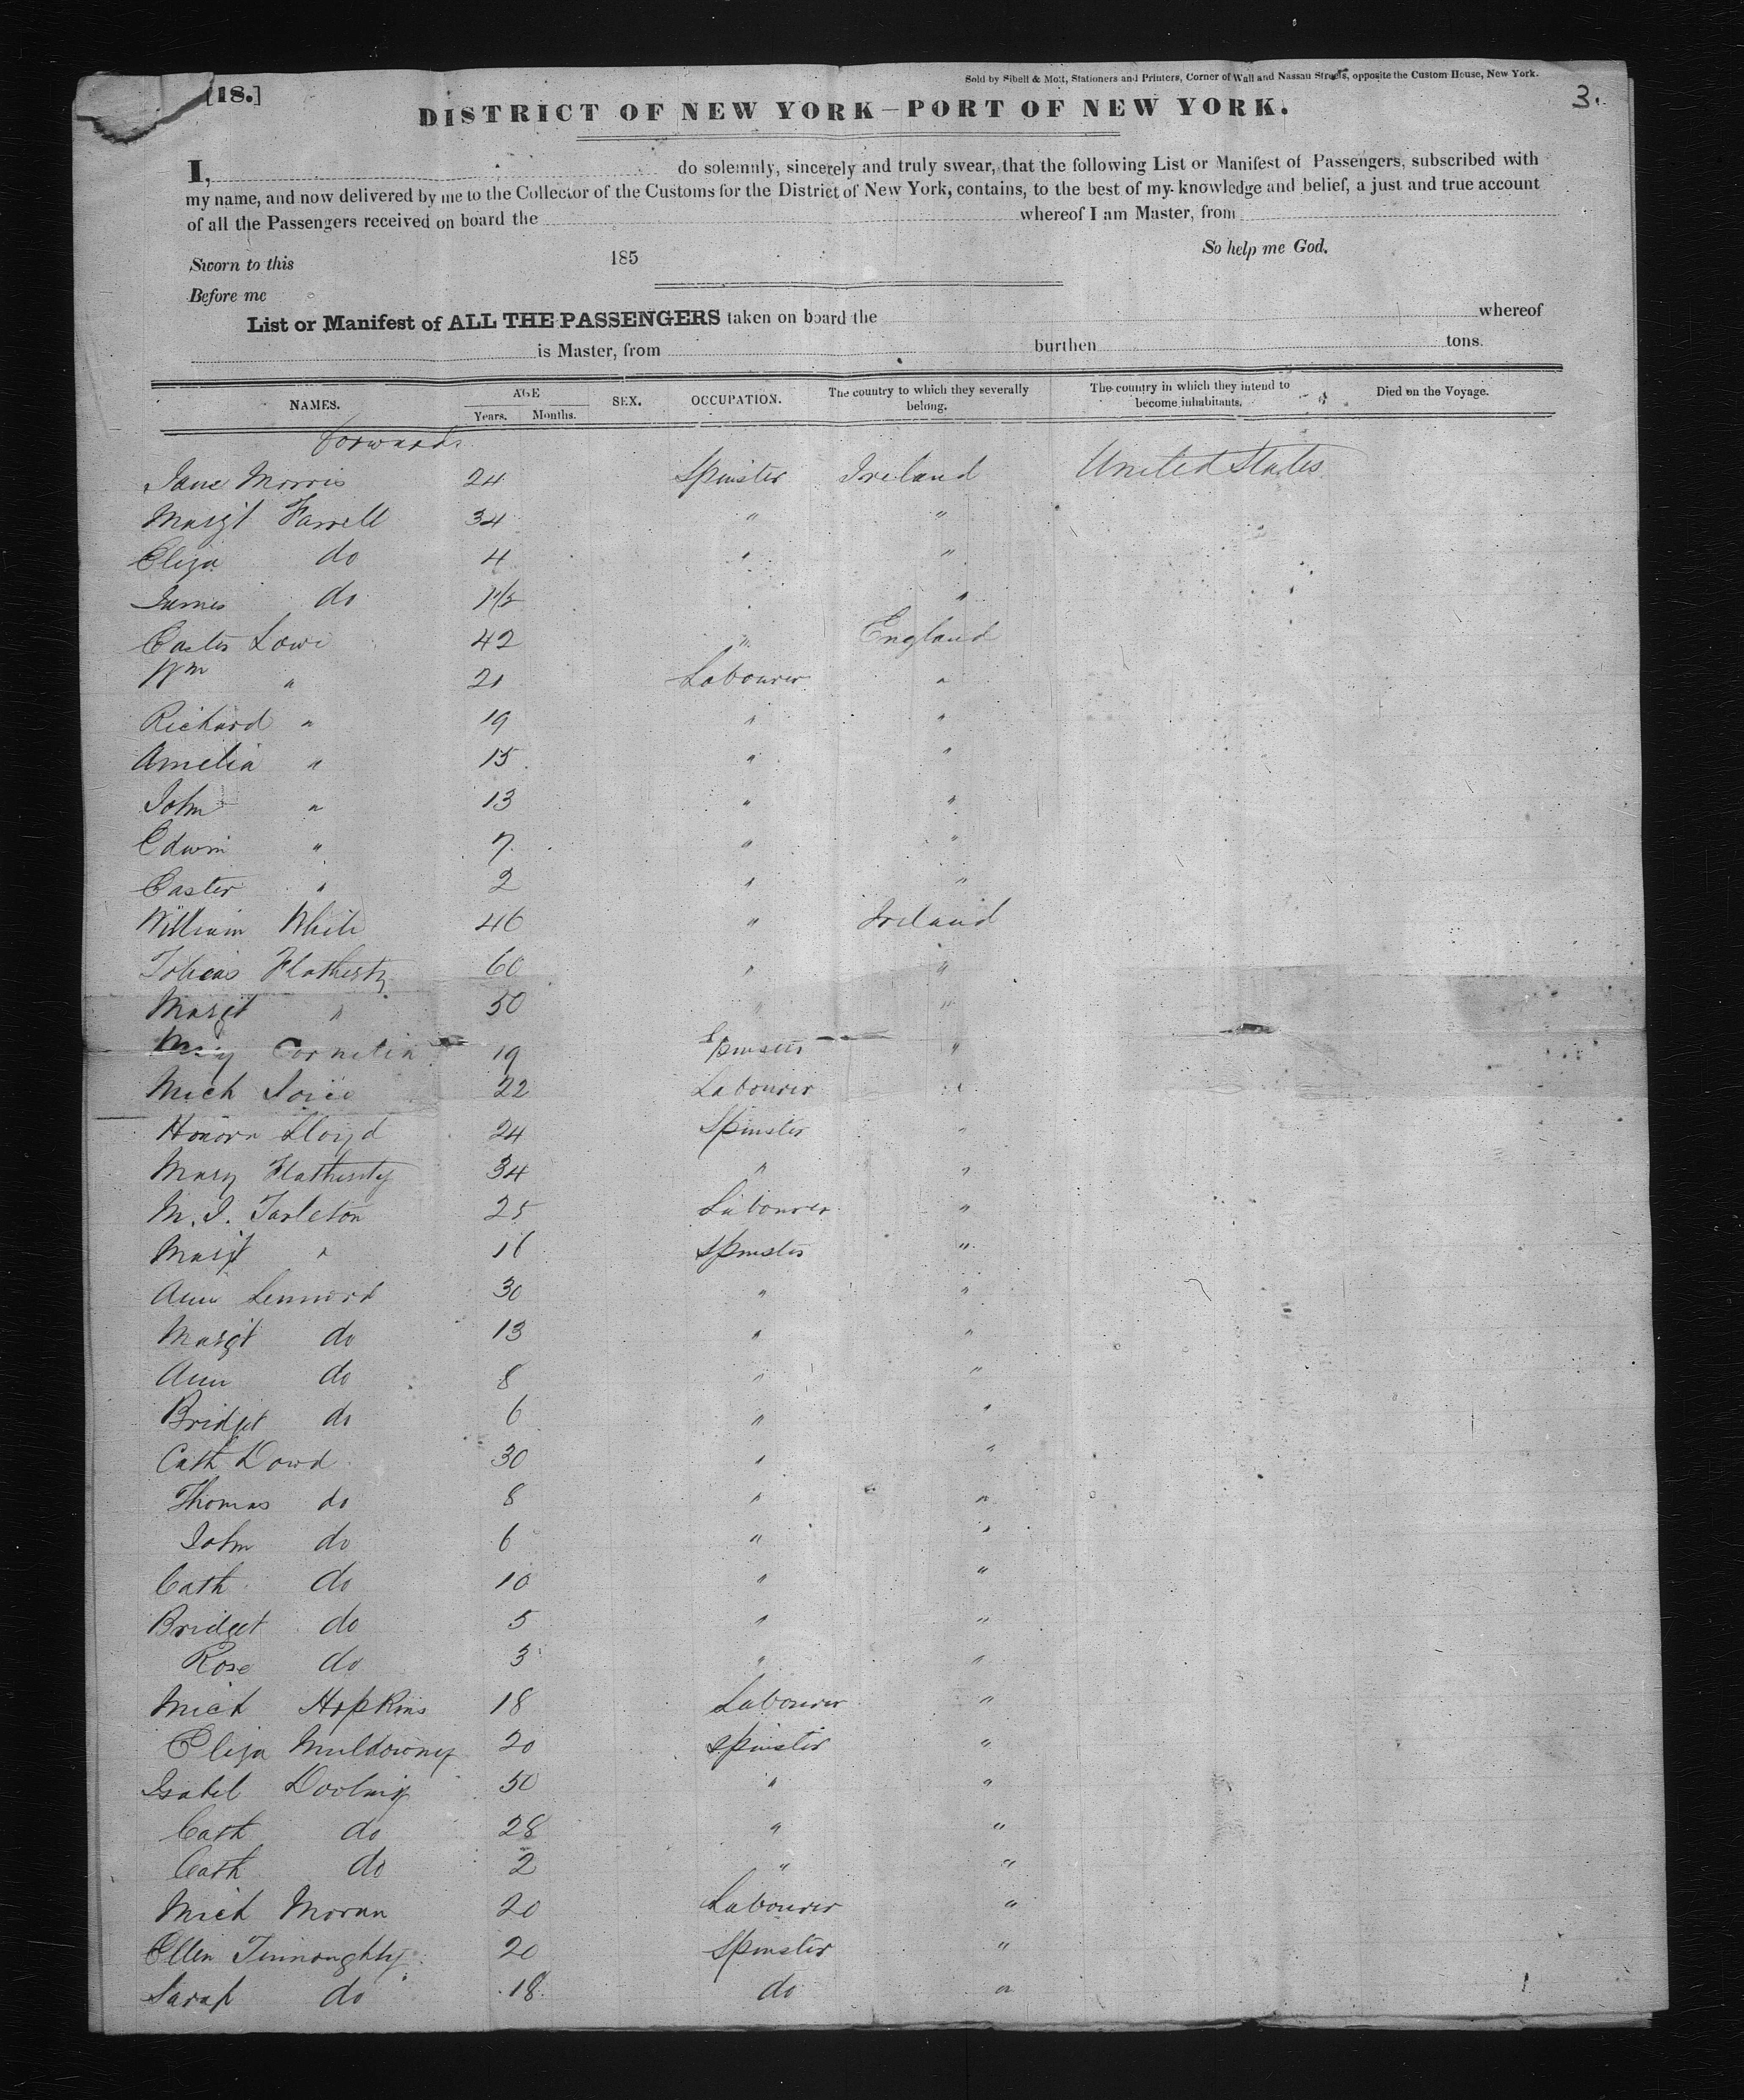 Sold by Sibell & Mott, Stationers and Printers, Corner of Wall and Nassau Streets, opposite the Custom House, New York.
[18.]
3.
DISTRICT OF NEW YORK—PORT OF NEW YORK.
I, do solemnly, sincerely and truly swear, that the following List or Manifest of Passengers, subscribed with
my name, and now delivered by me to the Collector of the Customs for the District of New York, contains, to the best of my knowledge and belief, a just and true account
of all the Passengers received on board the whereof I am Master, from
So help me God.
Sworn to this 185
Before me
List or Manifest of ALL THE PASSENGERS taken on board the whereof
is Master, from burthen tons.
NAMES. AGE Years. Months. SEX. OCCUPATION. The country to which they severally belong. The country in which they intend to become inhabitants. Died on the Voyage.
Forwards
Jane Morris 24 Spinster Ireland United States
Margt Farrell 34 " "
Eliza do 4 " "
James do 1 1/2 " "
Lowe 42 " England
Wm " 21 Labourer "
Richard " 19 " "
Amelia " 15 " "
John " 13 " "
Edwin " 7 " "
" 2 " "
William White 46 " Ireland
Tobias Flatherty 60 " "
Margt " 50 " "
Mary 19 Spinster "
Mich Joice 22 Labourer "
Honora Lloyd 24 Spinster "
Mary Flatherty 34 " "
M. J. Tarleton 25 Labourer "
Margt " 16 Spinster "
Ann Lennord 30 " "
Margt do 13 " "
Ann do 8 " "
Bridget do 6 " "
Cath Dowd 30 " "
Thomas do 8 " "
John do 6 " "
Cath do 10 " "
Bridget do 5 " "
Rose do 3 " "
Mich Hopkins 18 Labourer "
Eliza Muldowney 20 Spinster "
Isabel Dooling 50 " "
Cath do 28 " "
Cath do 2 " "
Mich Moran 20 Labourer "
Ellen Finnoughty 20 Spinster "
Sarah do 18 do "